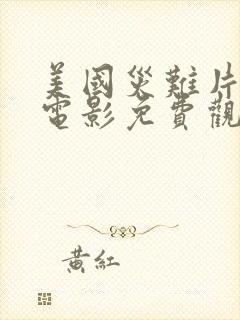 美國災難片
電影免費觀
黃紅